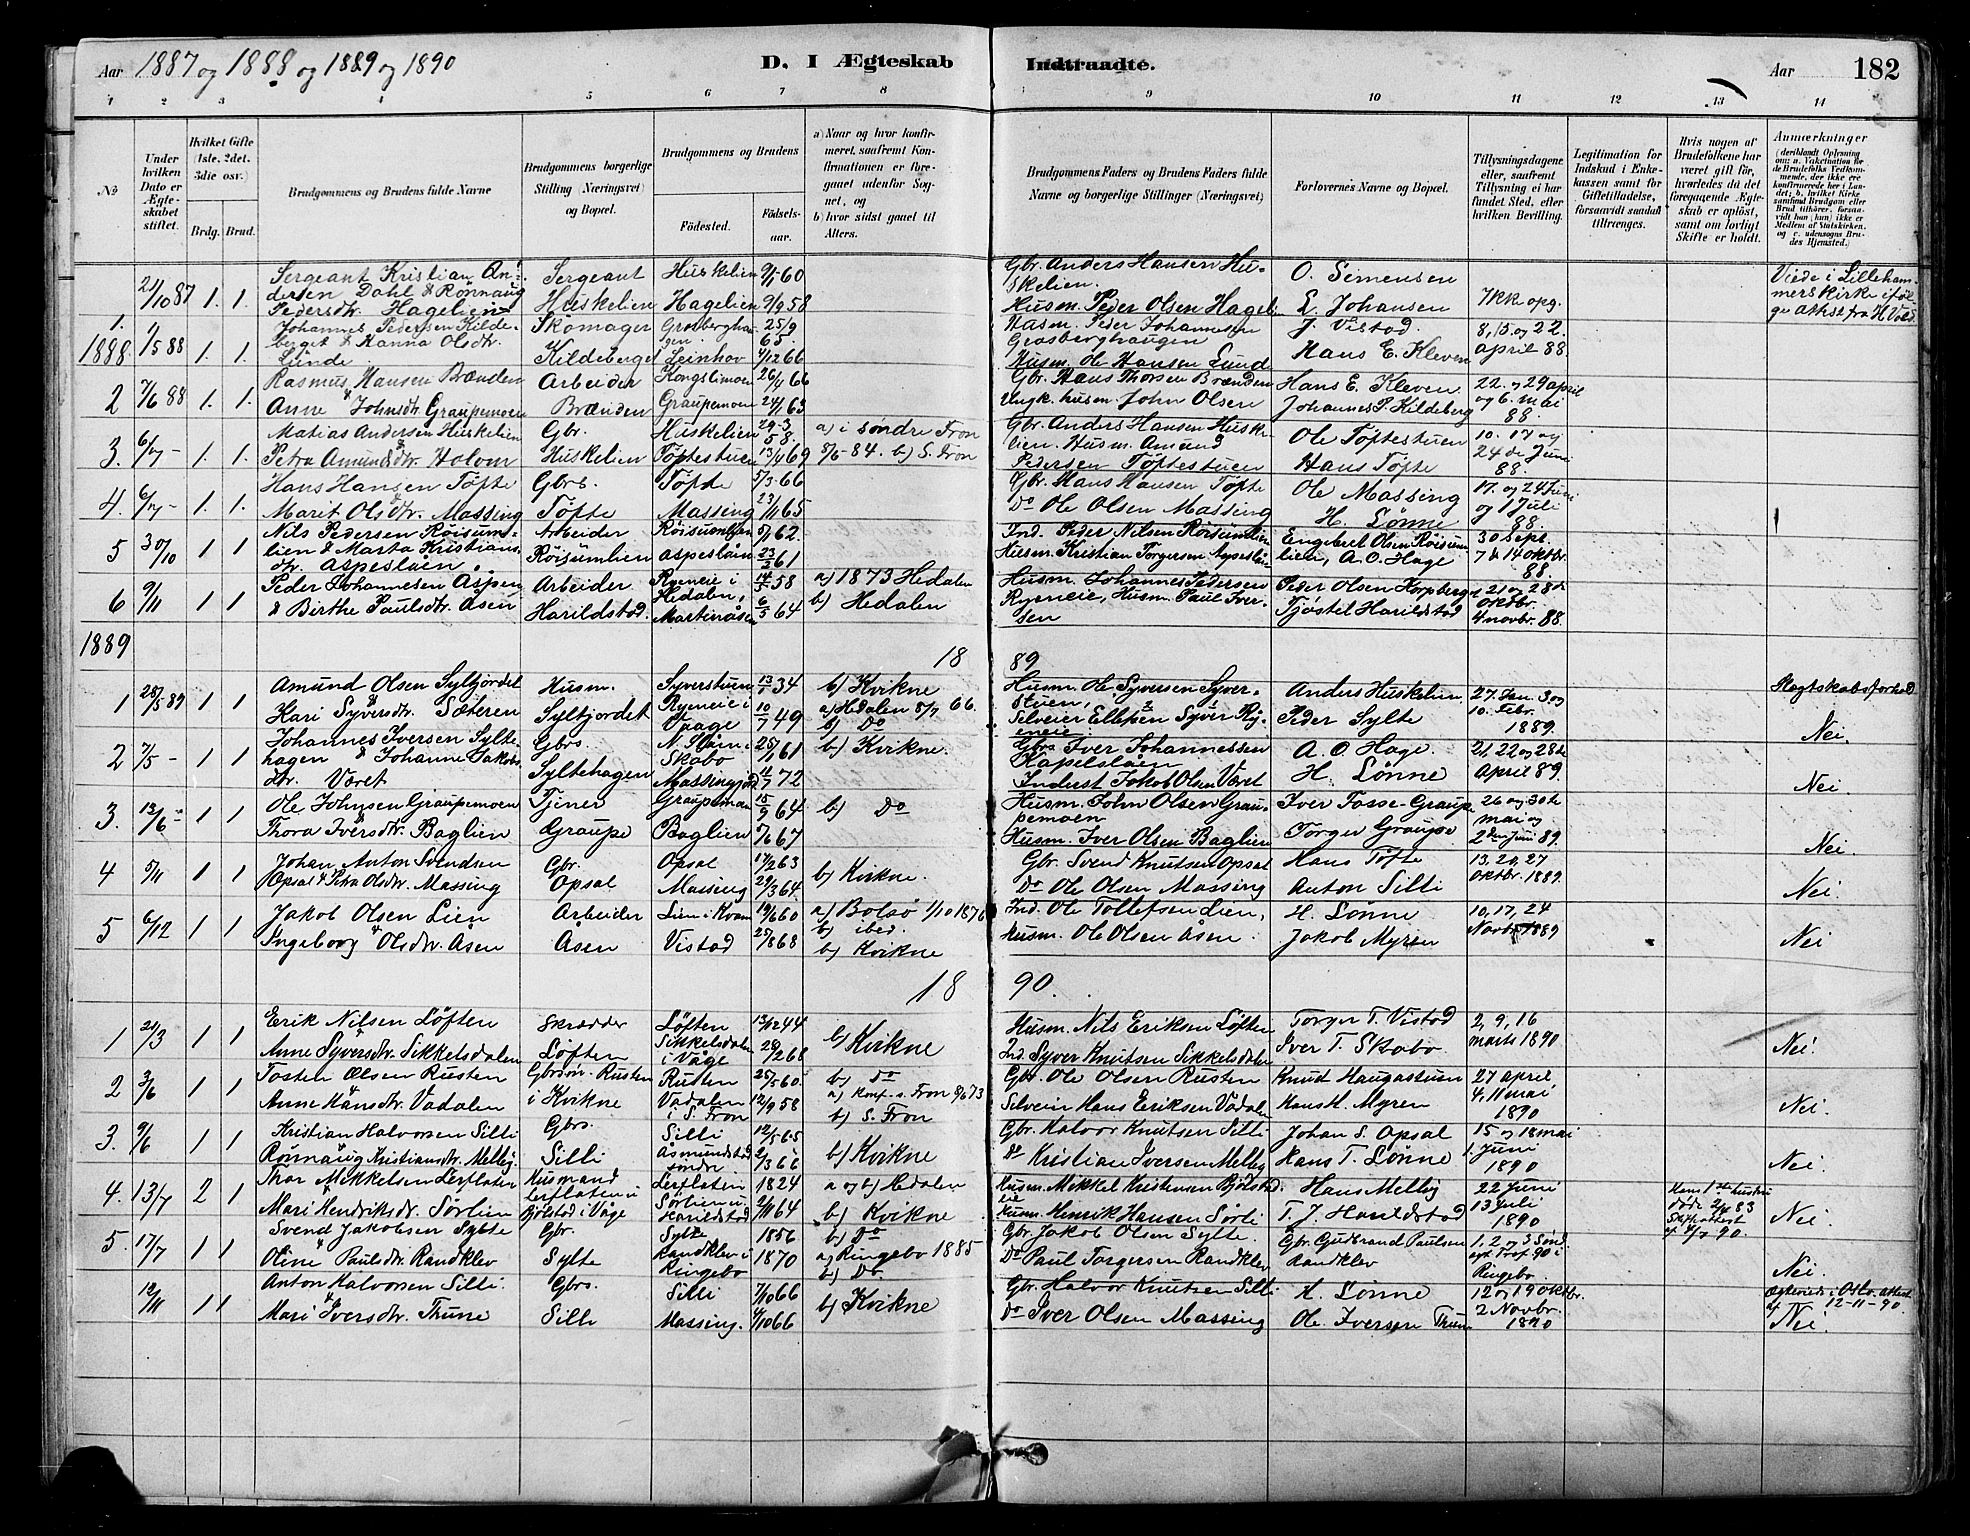 Aar 1887 og 1888 og 1889 og 1890
D. I Ægteskab Indtraadte.
Aar 182
1 2 3 4 5 6 7 8 9 10 11 12 13 14
No
Under hvilken Dato er Ægteskabet stiftet.
Hvilket Gifte (1ste, 2det, 3die osv.)
Brdg. Brud.
Brudgommens og Brudens fulde Navne
Brudgommens borgerlige Stilling (Næringsvei) og Bopæl.
Brudgommens og Brudens
Fødested.
Fødselsaar.
a) Naar og hvor konfirmeret, saafremt Konfirmationen er foregaaet udenfor Sognet, og
b) hvor sidst gaaet til Alters.
Brudgommens Faders og Brudens Faders fulde Navne og borgerlige Stillinger (Næringsvei)
Forlovernes Navne og Bopæl.
Tillysningsdagene eller, saafremt Tillysning ei har fundet Sted, efter hvilken Bevilling.
Legitimation for Indskud i Enkekassen samt for Giftetilladelse, forsaavidt saadan tiltrænges.
Hvis nogen af Brudefolkene har været gift før, hvorledes da det foregaaende Ægteskab er opløst, samt om lovligt Skifte er holdt.
Anmærkninger
(deriblandt Oplysning om: a. Vakcination for de Brudefolks Vedkommende, der ikke ere konfirmerede her i Landet; b. hvilket Kirkesamfund Brudgom eller Brud tilhører, forsaavidt han (hun) ikke er Medlem af Statskirken, og c. udensogns Brudes Hjemsted.)
21/10 87 1. 1. Sergeant Kristian Andersen Dahl & Rönnaug Pedersdr. Hagelien
Sergeant Huskelien
Huskelien 9/5 60
Hagelien 9/9 58
Gbr. Anders Hansen Huskelien.
Husm. Peder Olsen Hagel.
O. Simensen
L. Johansen
Ikke opg.
Viede i Lillehammers kirke ifølge attest fra H. Vold
1. 1888 1/5 88 1. 1. Johannes Pedersen Kildeberget & Hanna Olsdtr. Lunde
Skomager Kildeberget
Grosberghaugen 25/9 65.
Leinhov 4/12 66
Husm. Peder Johannesen Grosberghaugen
Husm. Ole Hansen Lund
J. Vistad.
Hans E. Kleven
8, 15 og 22. april 88.
2 7/6 88 1. 1. Rasmus Hansen Brænden & Anne Johnsdr. Graupemoen
Arbeider Brænden
Kongslimoen 26/4 66
Graupemoen 24/1 63
Gbr. Hans Thorsen Brænden
Ungk. husm. John Olsen
Hans E. Kleven
Johannes P. Kildeberg
22. og 29 april og 6. mai 88.
3. 6/7 - 1. 1. Matias Andersen Huskelien & Petra Amundsdtr. Holom
Gbr. Huskelien
Huskelien 29-3 58.
Töftestuen 13/4 69
a) i söndre Fron 8/6-84. b) S. Fron
Gbr. Anders Hansen Huskelien. Husm. Amund Pedersen Töftestuen
Ole Töftestuen
Hans Töfte
10. 17 og 24 de Juni 88.
4. 6/7 - 1. 1. Hans Hansen Töfte & Marit Olsdtr. Massing
Gbrs. Töfte
Töfte 5/3 66
Massing 23/11 65
Gbr. Hans Hansen Töfte
Do Ole Olsen Massing
Ole Massing
H. Lönne
17. og 24 Juni og 1 Juli 88.
5 30/10 1 1 Nils Pedersen Röisumlien & Marta Kristiansdtr. Aspeslåen.
Arbeider Röisumlien
Röisumlien 5/1 62.
Aspeslåen 23/2 61
Ind. Peder Nilsen Röisumlien
Husm. Kristian Torgersen Aspeslåen
Engebret Olsen Röisumlien, A. O. Hage
30 Sept. 7 & 14 oktbr. 88.
6 9/11 1 1 Peder Johannesen Aspen & Birthe Paulsdtr. Åsen
Arbeider Harildstad.
Ryeneie i Hedalen, 14/5 58
Martinåsen 6/5 64
a) 1873 Hedalen
b) Hedalen
Husm. Johannes Pedersen Ryeneie, Husm. Paul Iversen
Peder Olsen Korpberget
Tjöstel Harildstad
21 og 28 de oktbr. 4 novbr. 88.
1889 18 89
1 28/5 89 1 1 Amund Olsen Syltjordet & Kari Syversdtr. Sæteren
Husm. Syltjordet
Syverstuen 13/1 34
Ryeneie i Vaage 10/7 49
b) Kvikne
a) Hedalen 8/7 66.
b) Do
Husm. Ole Syversen Syverstuen,
Selveier Ellpen Syver Ryeneie
Anders Huskelien,
Peder Sylte
27. Jan. 3 og 10. Febr. 1889.
Slægtskabsforhold
Nei.
2 7/5 - 1 1 Johannes Iversen Syltehagen & Johanne Jakobsdtr. Været
Gbrs. Syltehagen
Skabo 25/11 61
Massingjord 11/7 72
b) Kvikne.
Gbrs Iver Johannessen Kapelslåen
Inderst Jakob Olsen Været
A. O. Hage.
H. Lönne
21, 22 og 28 de April 89.
Nei.
3. 13/6 - 1 1 Ole Johnsen Graupemoen & Thora Iversdtr. Baglien
Tjener Graupe
Graupemoen 15/9 64
Baglien 5/6 67
b) Do
Husm. John Olsen Graupemoen
Husm. Iver Olsen Baglien
Iver Tosse-Graupe
Torger Graupe
26 og 30 te mai og 2 den Juni 89.
Nei.
4 5/11 1 1 Johan Anton Svendsen Opsal & Petra Olsdtr. Massing
Gbr. Opsal
Opsal 17/2 63
Massing 29/3 64.
b) Kvikne.
Gbr. Svend Knutsen Opsal
Do Ole Olsen Massing
Hans Töfte
Anton Silli
13. 20, 27 oktbr. 1889.
Nei
5 6/12 1 1 Jakob Olsen Lien & Ingeborg Olsdtr. Åsen
Arbeider Åsen
Lien i Kvam 19/6 60
Vistad 25/8 68
a) Bolsö 1/10 1876
b) ibed.
b) Kvikne
Ind. Ole Tollefsen Lien,
Husm. Ole Olsen Åsen.
H. Lönne
Jakob Myren
10, 17, 24 Novbr 1889
Nei
18 90.
1 21/3 1 1 Erik Nilsen Löften & Anne Syversdtr. Sikkelsdalen
Skrædder Löften
Löften 13/12 44
Sikkelsdalen i Våge 29/2 68
b) Kvikne
Husm. Nils Eriksen Löften
Ind. Syver Knutsen Sikkelsdalen
Torger T. Vistad
Iver T. Skabo.
2, 9, 16 marts 1890
Nei.
2 3/6 1 1 Tosten Olsen Rusten & Anne Hansdtr. Vadalen
Gbrsön. Rusten i Kvikne
Rusten 25/5 60.
Vadalen i S. Fron 12/9 58
b) Do
a) Konf. s. Fron 8/6 73
b) S. Fron
Gbr. Ole Olsen Rusten
Selveir Hans Eriksen Vadalen
Knud Haugastuen
Hans H. Myren
27 april 4, 11 mai 1890
Nei.
3. 9/6 1 1 Kristian Halvorsen Silli & Rönnaug Kristiansdtr. Melby
Gbrs. Silli
Silli 12/5 65
Asmundstad söndr. 2/3 66
b) Kvikne
Gbr. Halvor Knutsen Silli
Do Kristian Iversen Melby
Johan S. Opsal
Hans T. Lönne
15 og 18 mai 1. Juni 1890
Nei.
4. 13/7 2 1 Thor Mikkelsen Lerflaten & Mari Hendriksdr. Sörlien
Husmand Lerflaten u. Bjölstad i Våge
Lerflaten 1824
Sörlien u. Harildstad 2/11 64
a og b) Hedalen
b) Kvikne
Husm. Mikkel Kristensen Bjölstadeie
Husm. Henrik Hansen Sörli
Hans Melby
T. J. Harildstad
22 Juni 13 Juli 1890
Hans 1ste hustru døde 2/4 83 Skifteattest af 4/7 90.
Nei
5. 17/7 1 1 Svend Jakobsen Sylte & Oline Paulsdtr. Randklev
Gbr. Sylte
Sylte 1856
Randklev i Ringebo 1870
b) Do
a) Ringebo 1885
b) Do
Gbr. Jakob Olsen Sylte.
Do Paul Torgersen Randklev
Gbr. Gudbrand Paulsen Randklev
1, 2 og 3 Sönd. eft Tref. 90 i Ringebo
Nei.
12/11 1 1 Anton Halvorsen Silli & Mari Iversdtr. Thune
Gbrs. Silli
Silli 7/10 66
Massing. 4/10 66
b) Kvikne
Gbr. Halvor Knutsen Silli
Do Iver Olsen Massing
H. Lönne
Ole Iversen Thune
12 og 19 oktbr. 2 Novbr. 1890
Ægteviede i Oslo. attest af 12-11-90.
Nei.